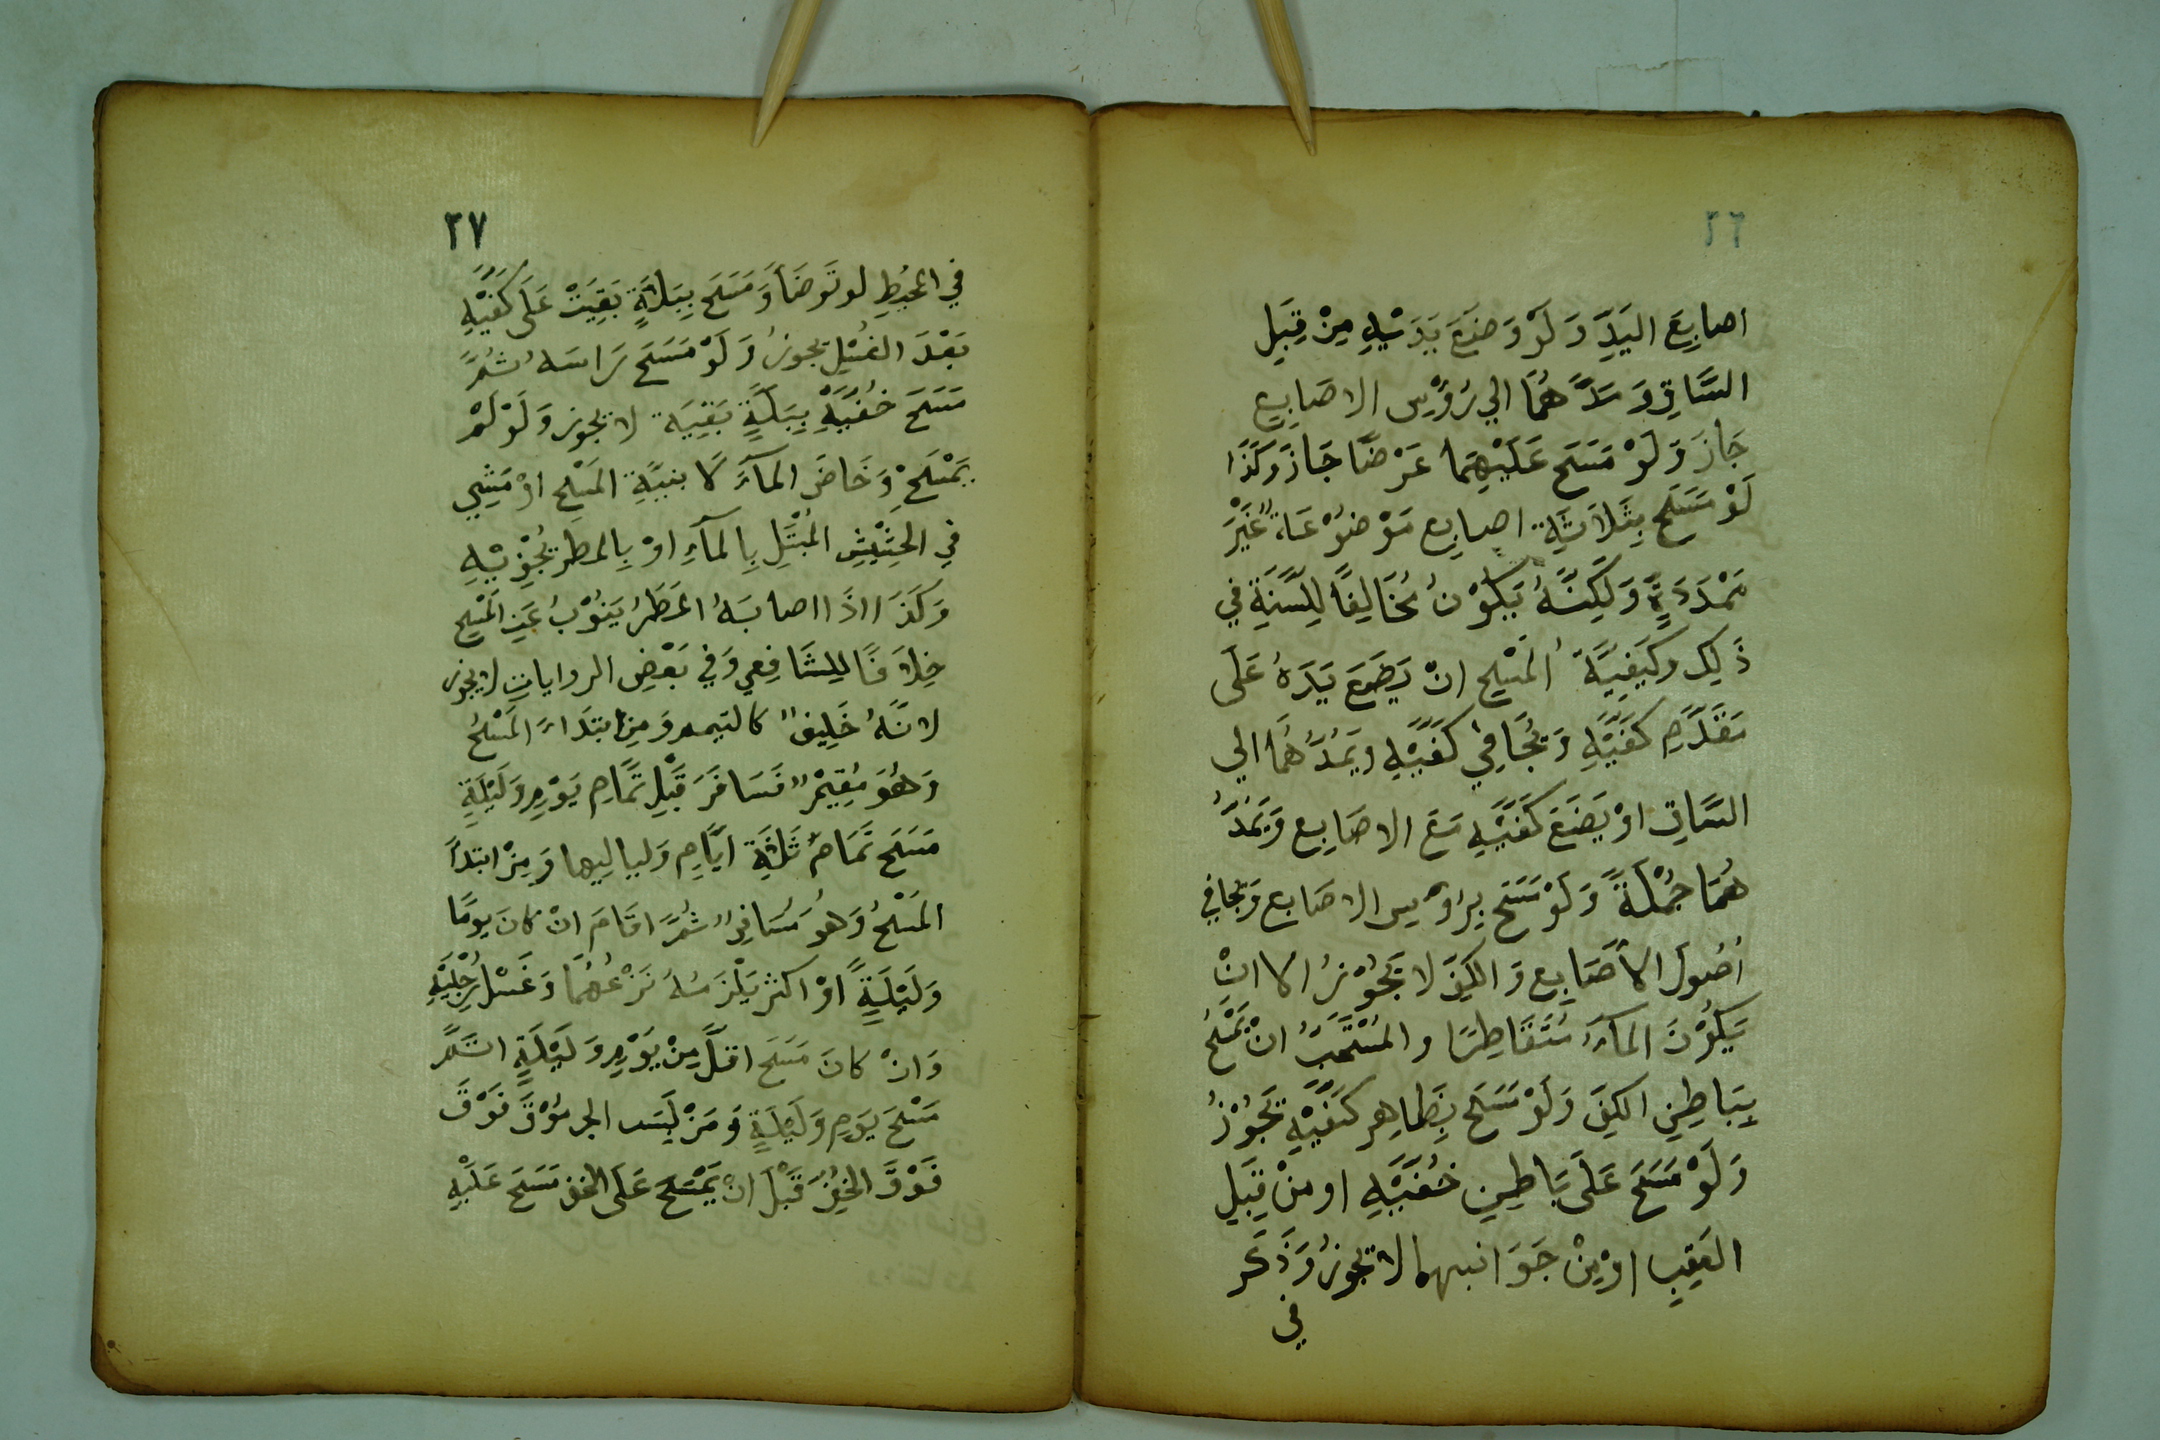 ٢٦
اصابِعَ اليَدِّ وَلَوْ وَضَعَ يَدَيْهِ مِنْ قِبَلِ
السَّاقِ وَمَدَّهُمَا الي رُؤُسِ الاصَابِعِ
جَازَ وَلَوْ مَسَحَ عَلَيْهِمَا عَرْضًا جَازَ وَكَذَا
لَوْ مَسَحَ بِثَلَاثَةِ اصابِع مَوْضُوْعَةٌ غَيْرَ
مَمْدَدَةٍ وَلَكِنَّهُ يَكُوْنُ مُخَالِفًا لِلسُّنَةِ في
ذَلِكَ وكَيَفِيَّة المَسْحِ انْ يَضَعَ يَدَهُ عَلَى
مَقَدَّمِ كَفَّيْهِ وَيُجَافِيْ كَفَّيْهِ ويَمُدُّهُمَا الي
السَّاقِ اوْ يَضَعَ كَفَّيْهِ مَعَ الاصَابِعِ وَيَمُدُّ
هُمَا جُمْلَةً وَلَوْ مَسَحَ بِرُؤُسِ الاصَابعِ وَيجافِي
اُصُولَ الأصَابِعِ وَالكَفَّ لا يَجُوْزُ الا انْ
يَكُوْنَ المَآءُ مُتَقَاطِرًا والمُسْتَحَبُّ انْ يَمْسَحُ
بِبَاطِنِ الكَفِّ وَلَوْ مَسَحَ بِظَاهِرِ كَفَّيْهِ يَجُوْزُ
وَلَوْ مَسَحَ عَلَى بَاطِنِ خُفَّيْهِ او مِنْ قِبَلِ
العَقِبِ اوْ مِنْ جَوَانبهما لا يجوزُ وَذَكَر
في
٢٧
في المحيْطِ لو تَوَضَأَ وَمَسَحَ بِبَلَّةٍ بَقِيَتْ عَلَى كَفَّيْهِ
بَعْدَ الغُسْلِ يجوزُ وَلَوْ مَسَحَ رَاسَهُ ثُمَّ
مَسَحَ خُفَّيْهِ بِبَلَّةٍ بَقِيَة لا يجوز وَلَوْ لَمْ
يَمْسَحْ وَخَاضَ المآءَ لَا بنيَّةِ المَسْحِ اوْ مَشِي
فِي الحشِيْشِ المُبْتَلِ بِالمَآءِ اوْ بِالمطرِ يُجْزِيْهِ
وَكَذَا اذَا اصابَهُ المَطَرُ يَنُوْبُ عَنِ المَسْحِ
خِلَافًا لِلشَافِعِي وَفِي بَعْضِ الروايَاتِ لا يجوز
لانَّهُ خَلِيفٌ كالتيمم وَمِن ابتَدَاءَ المَسْحُ
وَهُوَ مُقِيْمٌ فَسَافَرَ قَبْلِ تَمَامِ يَوْمٍ وَلَيْلَةٍ
مَسَحَ تَمَامُ ثَلَثَةِ ايَّامِ وَليالِيها وَمِنْ ابتدَأ
المَسْحُ وَهوُ مُسَافِرٌ ثُمَّ اقَامَ انْ كانَ يومًا
وَلَيْلَةٍ اوْ اكثر يَلْزَمُهُ نَزْعُهُمَا وَغَسْل رِجْلَيْهِ
وَانْ كانَ مَسَحَ اقلَّ مِنْ يَوْمٍ وَلَيْلَةٍ اتَمَّ
مَسْحَ يَوْمٍ وَلَيْلَةٍ وَمَنْ لَبِسَ الجرمُوْقَ فَوْقَ
فَوْقَ الخُفِّ قَبْلَ انْ يَمْسَحَ عَلَى الخف مَسَحَ عَلَيْهِ